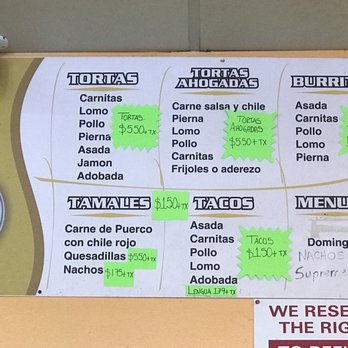 TORTAS
Carnitas
Lomo
Pollo
Pierna
Asada
Jamon
Adobada
TORTAS
$5.50+TX
TORTAS
AHOGADAS
Carne salsa y chile
Pierna
Lomo
Pollo
Carnitas
Frijoles o aderezo
TORTAS
AHOGADAS
$5.50+TX
BURRIT
Asada
Carnitas
Pollo
Lomo
Pierna
TAMALES
$1.50+TX
Carne de Puerco
con chile rojo
Quesadillas $5.50+TX
Nachos $1.75+TX
TACOS
Asada
Carnitas
Pollo
Lomo
Adobada
LENGUA 1.79+TX
TACOS
$1.50+TX
MENU
Doming
NACHOS
Supreme
WE RESE
THE RIG